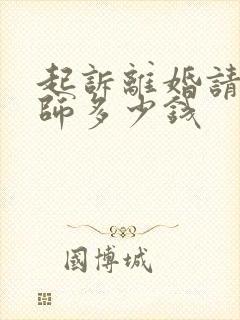 起訴離婚請
師多少錢
國博城